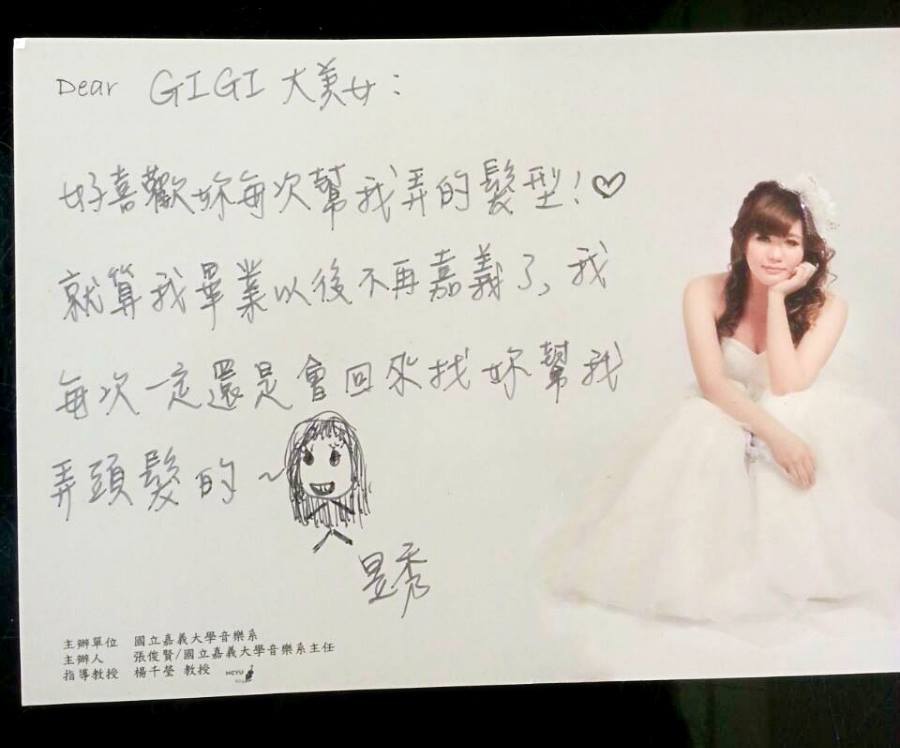 Dear GIGI 大美女：
好喜歡妳每次幫我弄的髮型！♡
就算我畢業以後不再嘉義了，我
每次一定還是會回來找妳幫我
弄頭髮的~
昱秀
主辦單位 國立嘉義大學音樂系
主辦人 張俊賢/國立嘉義大學音樂系主任
指導教授 楊千瑩 教授
NCYU